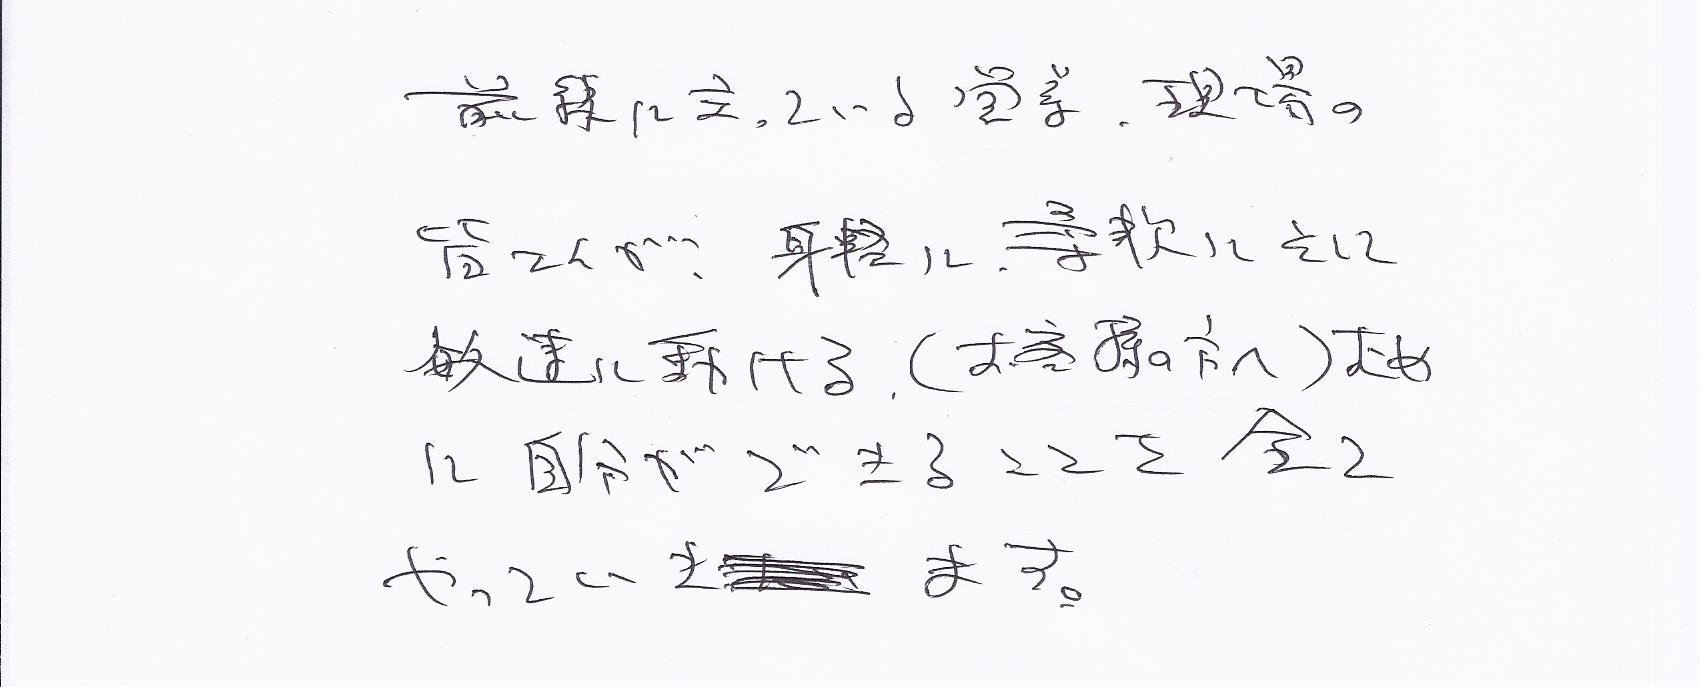 前線に立っている営業、現場の
皆さんが、身軽に、柔軟に、
敏速に動ける、(お客様の方へ)ため
に自分ができることを全て
やっていきます。